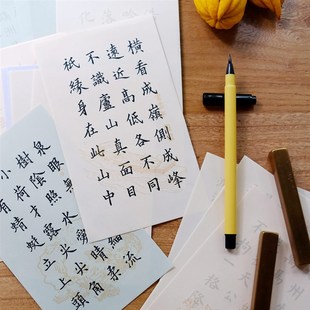 橫看成嶺側成峰
遠近高低各不同
不識廬山真面目
祇緣身在此山中
泉眼無細流
樹陰照水愛晴柔
小荷才露尖尖角
有蜻蜓立上頭